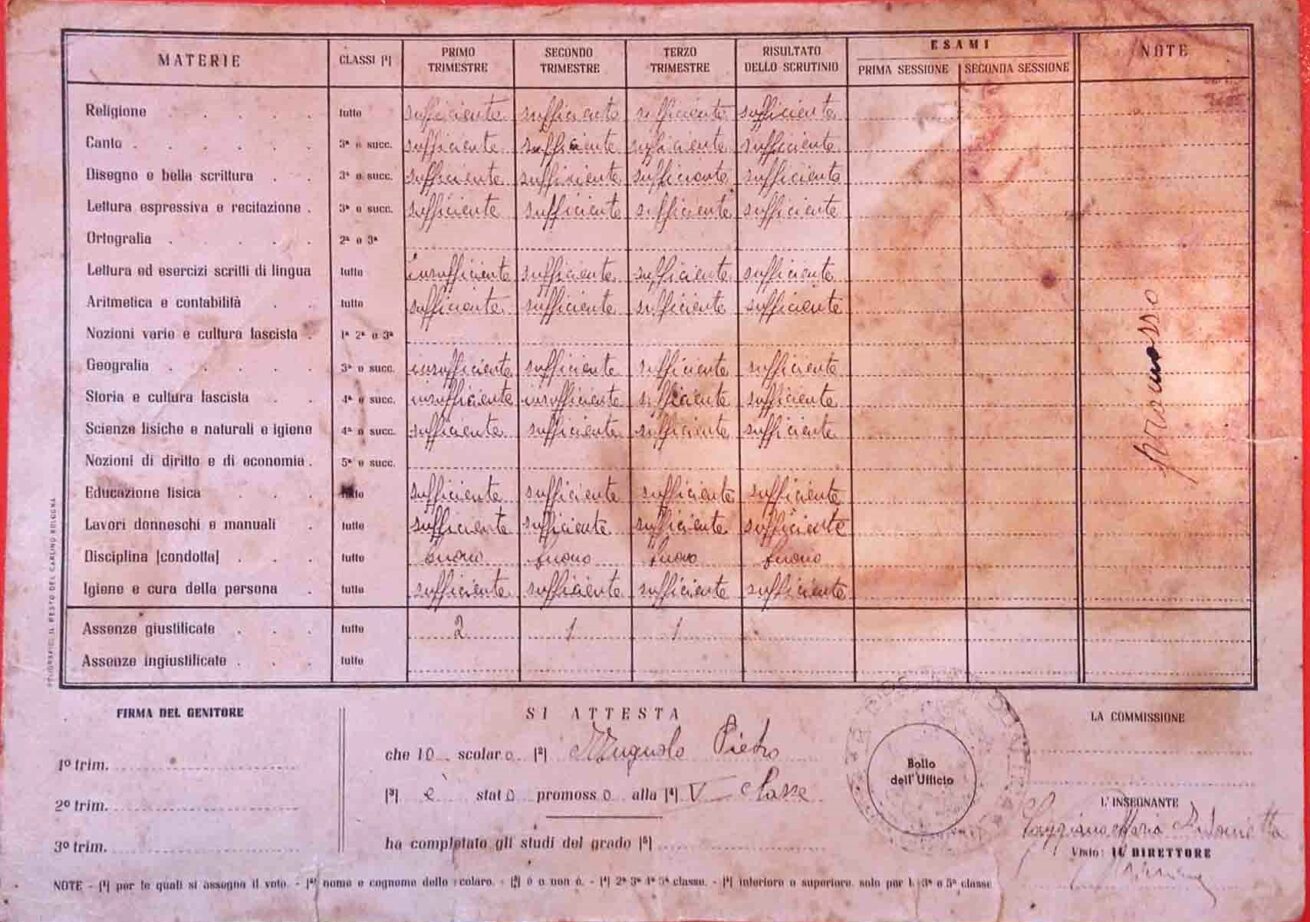 MATERIE CLASSI [¹] PRIMO TRIMESTRE SECONDO TRIMESTRE TERZO TRIMESTRE RISULTATO DELLO SCRUTINIO ESAMI PRIMA SESSIONE SECONDA SESSIONE NOTE
Religione tutte sufficiente sufficiente sufficiente sufficiente
Canto 3ª e succ. sufficiente sufficiente sufficiente sufficiente
Disegno e bella scrittura 3ª e succ. sufficiente sufficiente sufficiente sufficiente
Lettura espressiva e recitazione 3ª e succ. sufficiente sufficiente sufficiente sufficiente
Ortografia 2ª e 3ª
Lettura ed esercizi scritti di lingua tutte insufficiente sufficiente sufficiente sufficiente
Aritmetica e contabilità tutte sufficiente sufficiente sufficiente sufficiente
Nozioni varie e cultura fascista 1ª 2ª e 3ª
Geografia 3ª e succ. insufficiente sufficiente sufficiente sufficiente
Storia e cultura fascista 4ª e succ. insufficiente insufficiente sufficiente sufficiente
Scienze fisiche e naturali e igiene 4ª e succ. sufficiente sufficiente sufficiente sufficiente
Nozioni di diritto e di economia 5ª e succ.
Educazione fisica tutte sufficiente sufficiente sufficiente sufficiente
Lavori donneschi e manuali tutte sufficiente sufficiente sufficiente sufficiente
Disciplina [condotta] tutte buono buono buono buono
Igiene e cura della persona tutte sufficiente sufficiente sufficiente sufficiente
Assenze giustificate tutte 2 1 1
Assenze ingiustificate tutte
promosso
POLIGRAFICI IL RESTO DEL CARLINO BOLOGNA
FIRMA DEL GENITORE
1º trim.
2º trim.
3º trim.
SI ATTESTA
che lo scolaro [²] Mugnolo Pietro
[³] è stato promosso alla [⁴] V classe
ha completato gli studi del grado [⁵]
Bollo
dell'Ufficio
LA COMMISSIONE
L'INSEGNANTE
Maria Antonietta
Visto: IL DIRETTORE
NOTE - [¹] per le quali si assegna il voto. - [²] nome e cognome dello scolaro. - [³] è o non è. - [⁴] 2ª 3ª 4ª 5ª classe. - [⁵] inferiore o superiore, solo per la 3ª e 5ª classe